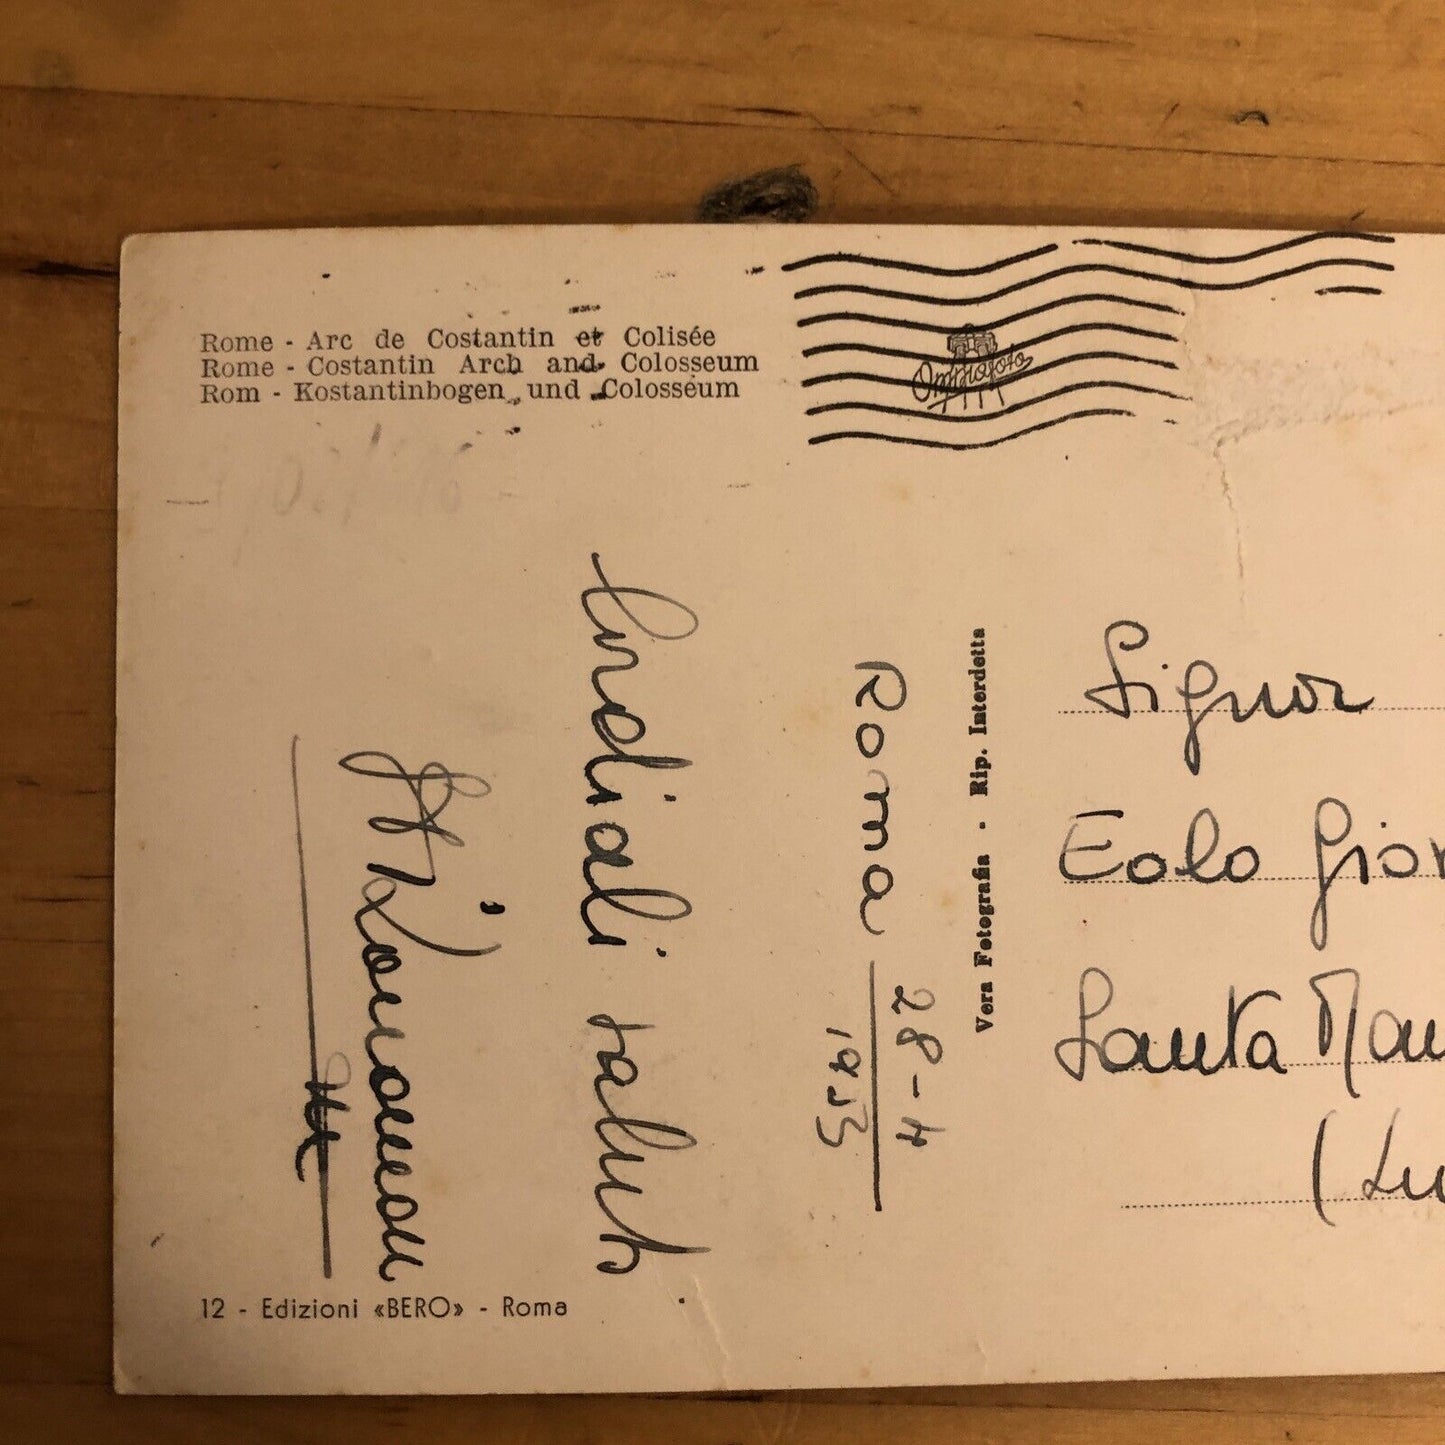 Rome - Arc de Costantin et Colisée
Rome - Costantin Arch and Colosseum
Rom - Kostantinbogen und Colosseum
Omniafoto
Roma 28-4
1953
Cordiali saluti
Vera Fotografia - Rip. Interdetta
Signor
Eolo Gior
Santa Mar
(Lu
12 - Edizioni «BERO» - Roma